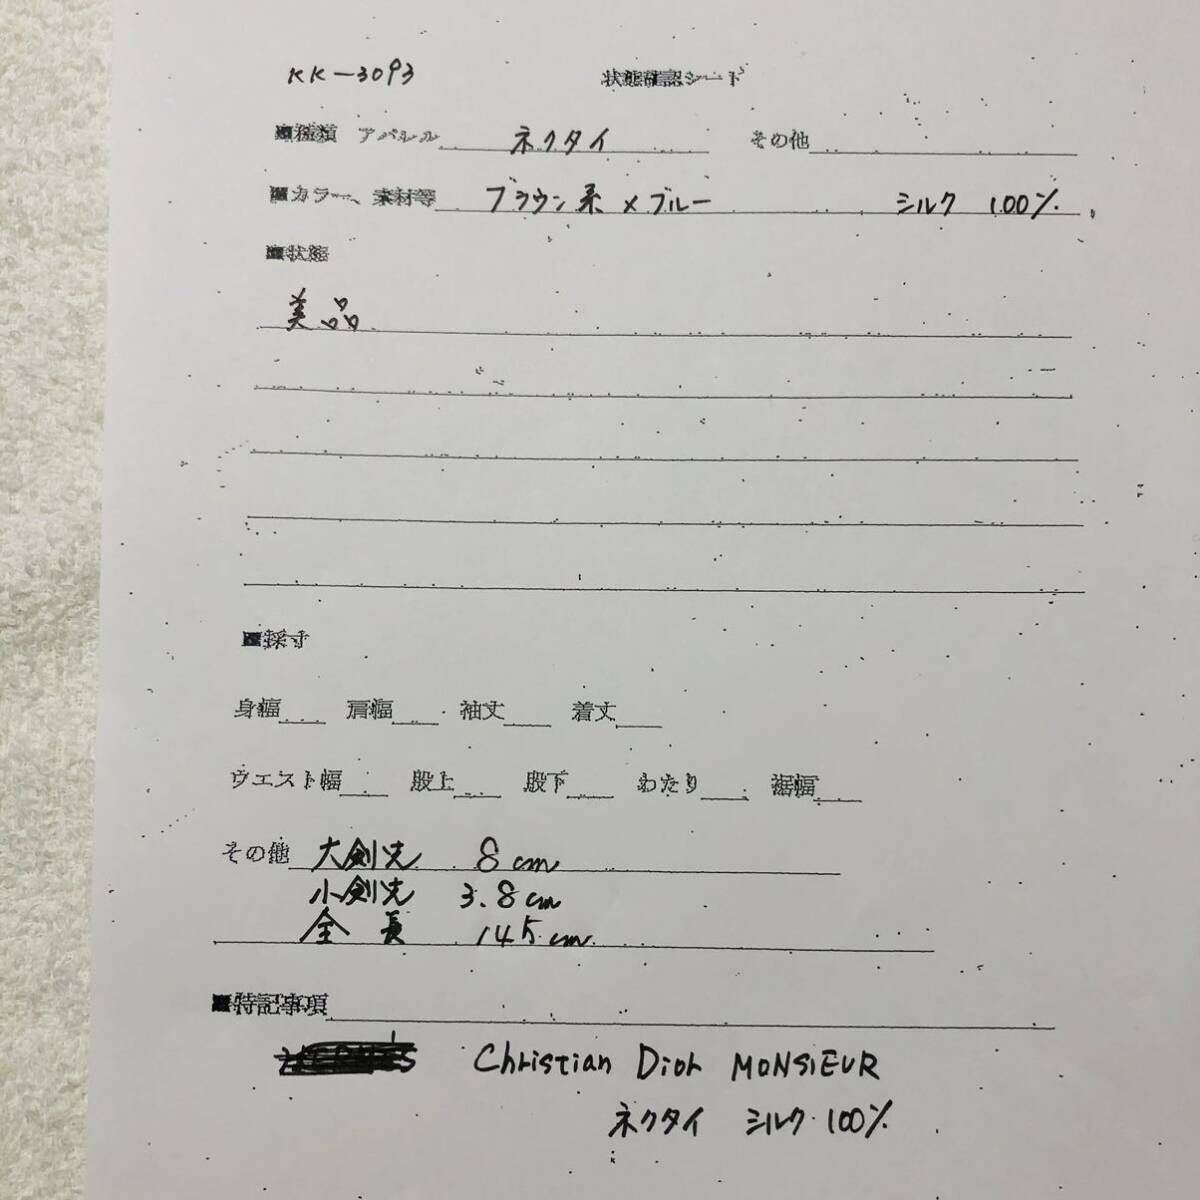 KK-3093 状態確認シート
■種類 アパレル ネクタイ その他
■カラー、素材等 ブラウン系×ブルー シルク 100%
■状態
美品
■採寸
身幅 肩幅 袖丈 着丈
ウエスト幅 股上 股下 わたり 裾幅
その他 大剣先 8cm
小剣先 3.8cm
全長 145cm
■特記事項
Christian Dior MONSIEUR
ネクタイ シルク 100%